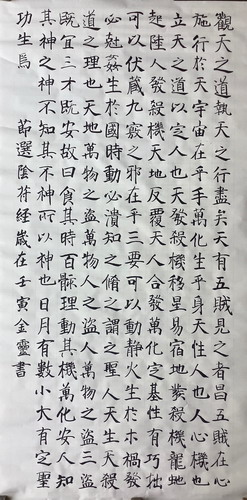 觀天之道執天之行盡矣天有五賊見之者昌五賊在心
施行於天宇宙在乎手萬化生乎身天性人也人心機也
立天之道以定人也天發殺機移星易宿地發殺機龍蛇
起陸人發殺機天地反覆天人合發萬化定基性有巧拙
可以伏藏九竅之邪在乎三要可以動靜火生於木禍發
必尅姦生於國時動必潰知之脩之謂之聖人天生天殺
道之理也天地萬物之盜萬物人之盜人萬物之盜三盜
既宜三才既安故曰食其時百骸理動其機萬化安人知
其神之神不知其不神所以神也日月有數小大有定聖
功生焉 節選陰符經歲在壬寅金靈書